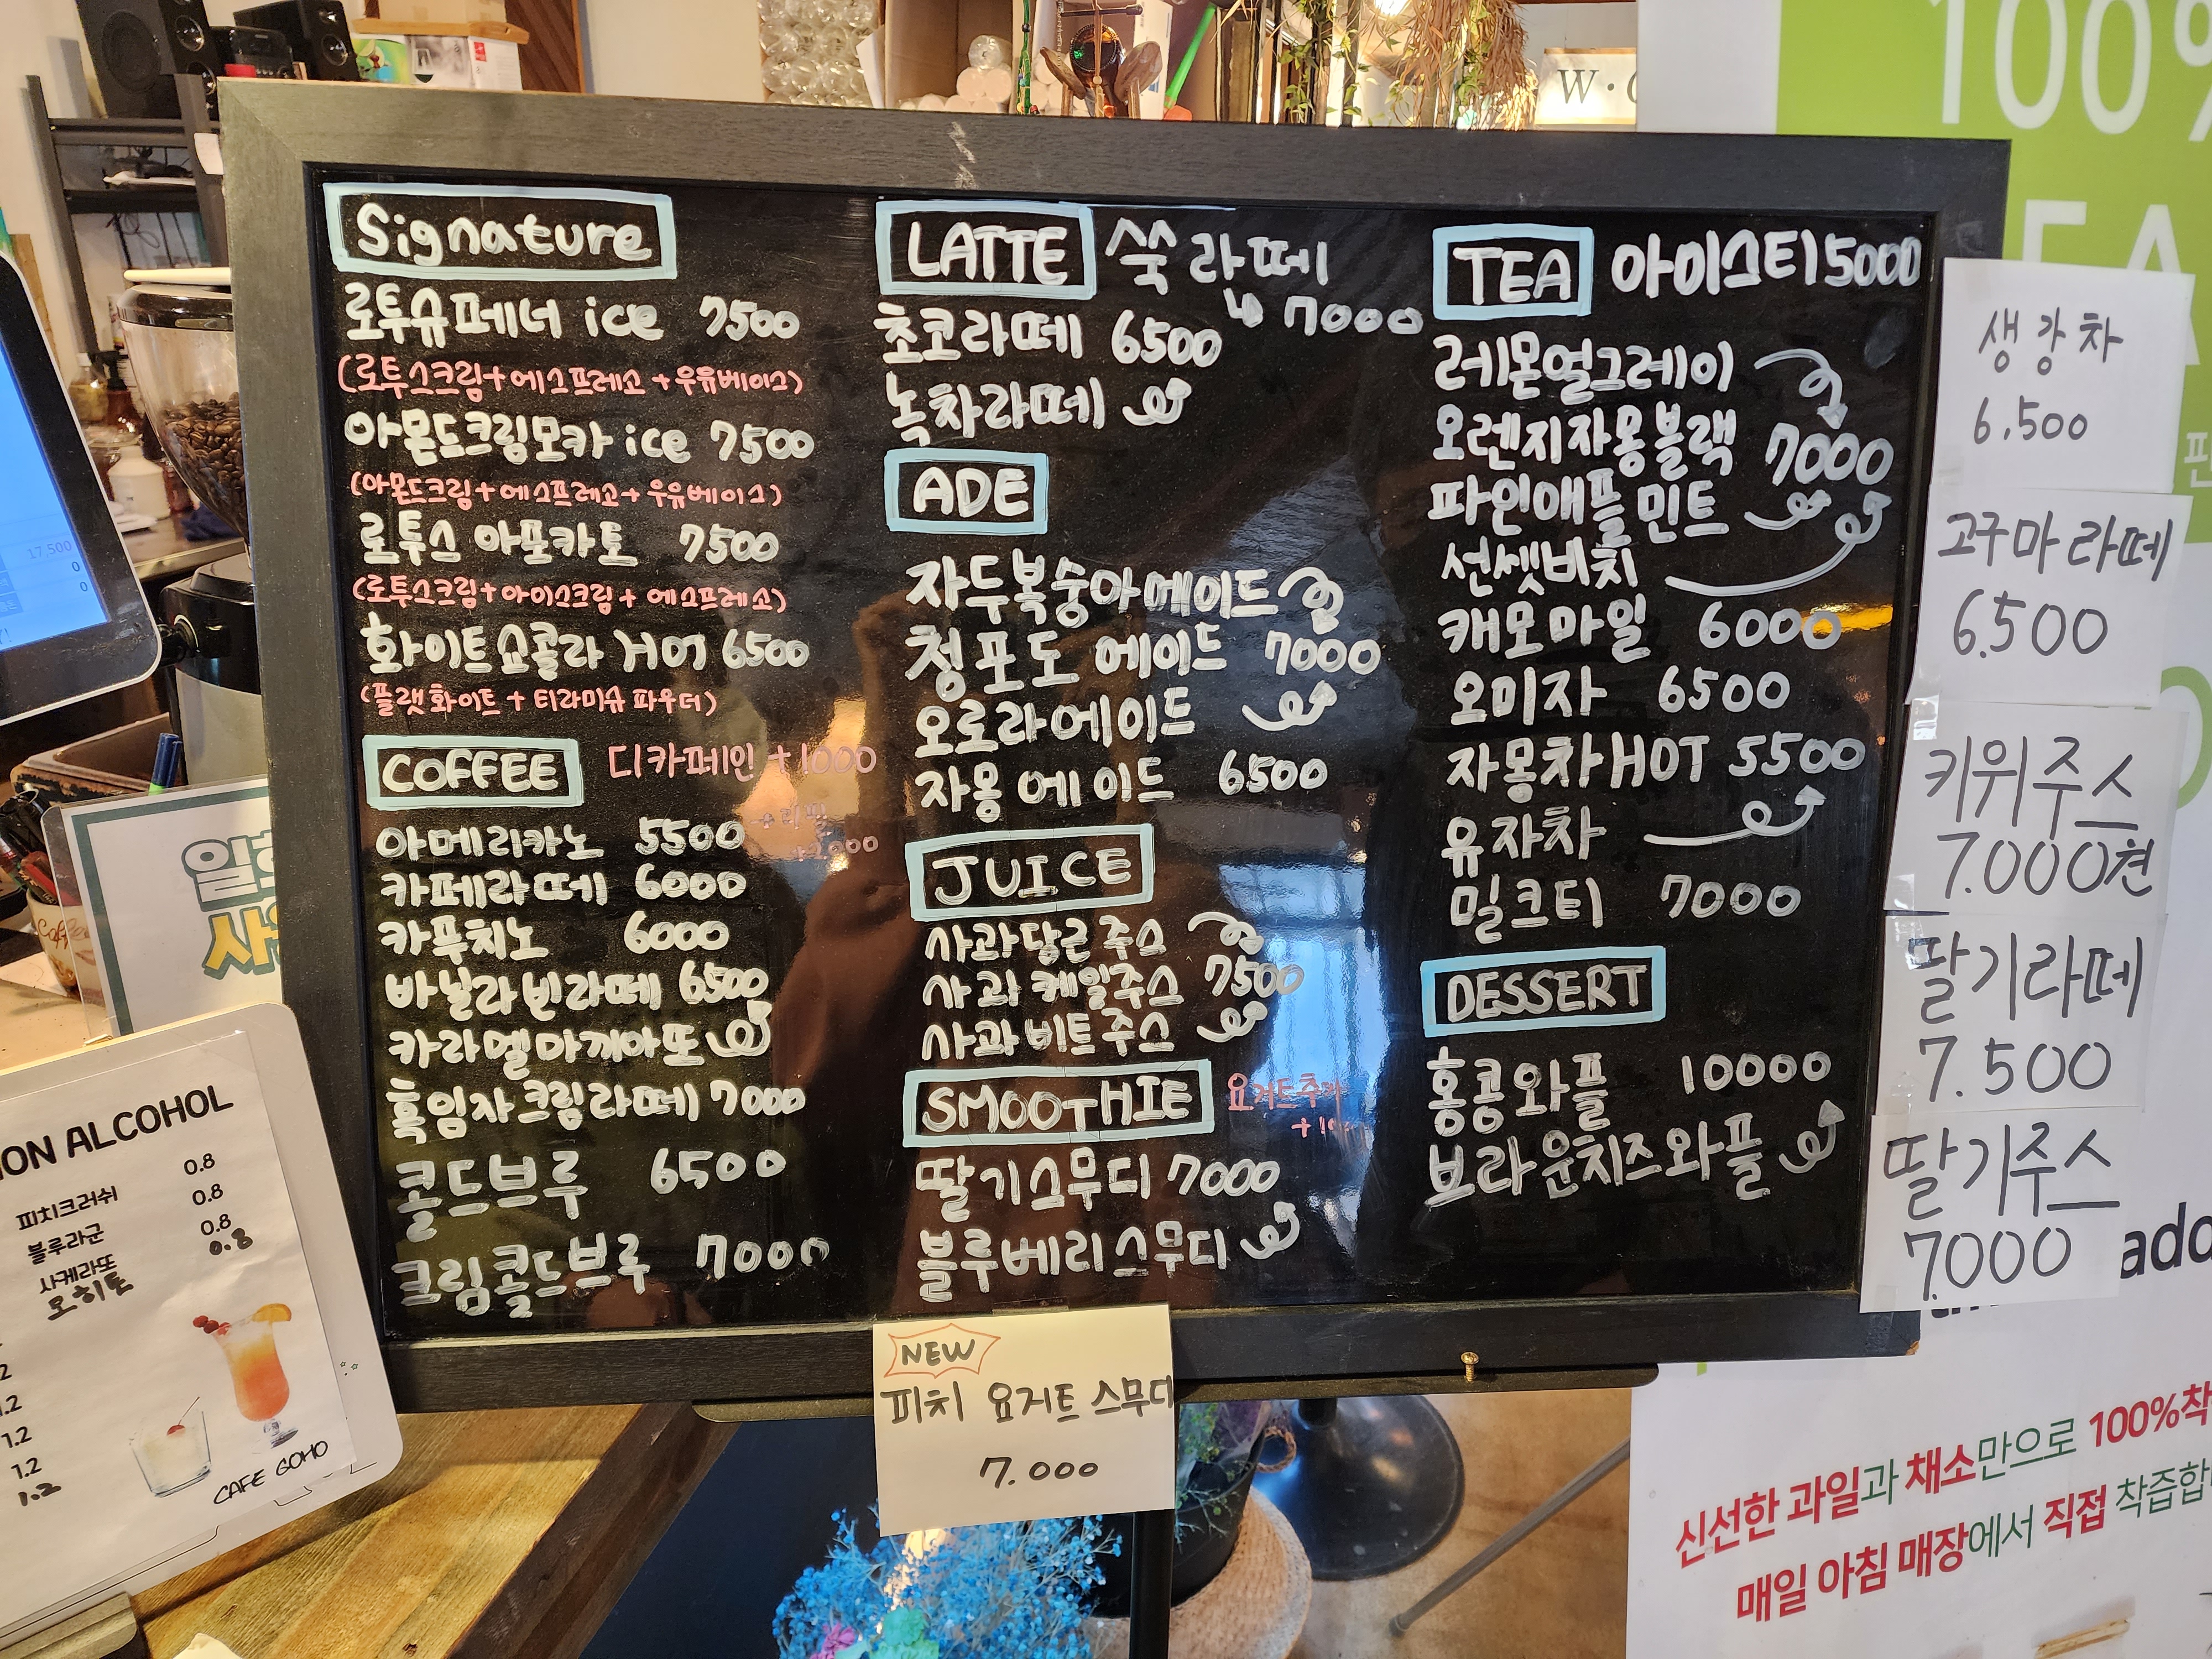 Signature
로투슈페너 ice 7500
(로투스크림+에스프레소+우유베이스)
아몬드크림모카 ice 7500
(아몬드크림+에스프레소+우유베이스)
로투스 아포카토 7500
(로투스크림+아이스크림+에스프레소)
화이트쇼콜라 HOT 6500
(플랫화이트+티라미슈 파우더)
COFFEE 디카페인 +1000
아메리카노 5500
카페라떼 6000
카푸치노 6000
바닐라빈라떼 6500
카라멜마끼아또
흑임자크림라떼 7000
콜드브루 6500
크림콜드브루 7000
LATTE 쑥라떼
7000
초코라떼 6500
녹차라떼
ADE
자두복숭아에이드
청포도 에이드 7000
오로라에이드
자몽에이드 6500
JUICE
사과당근주스
사과케일주스 7500
사과비트주스
SMOOTHIE 요거트추가
딸기스무디 7000
블루베리스무디
TEA 아이스티 5000
레몬얼그레이
오렌지자몽블랙 7000
파인애플민트
선셋비치
캐모마일 6000
오미자 6500
자몽차 HOT 5500
유자차
밀크티 7000
DESSERT
홍콩와플 10000
브라운치즈와플
생강차
6,500
고구마라떼
6.500
키위주스
7.000원
딸기라떼
7.500
딸기주스
7.000
NEW
피치 요거트 스무디
7.000
ON ALCOHOL
피치크러쉬 0.8
블루라군 0.8
사케라또 0.8
모히또 0.8
1.2
1.2
1.2
1.2
CAFE GOHO
17,500
0
0
100%
W·
ado
신선한 과일과 채소만으로 100%착
매일 아침 매장에서 직접 착즙합